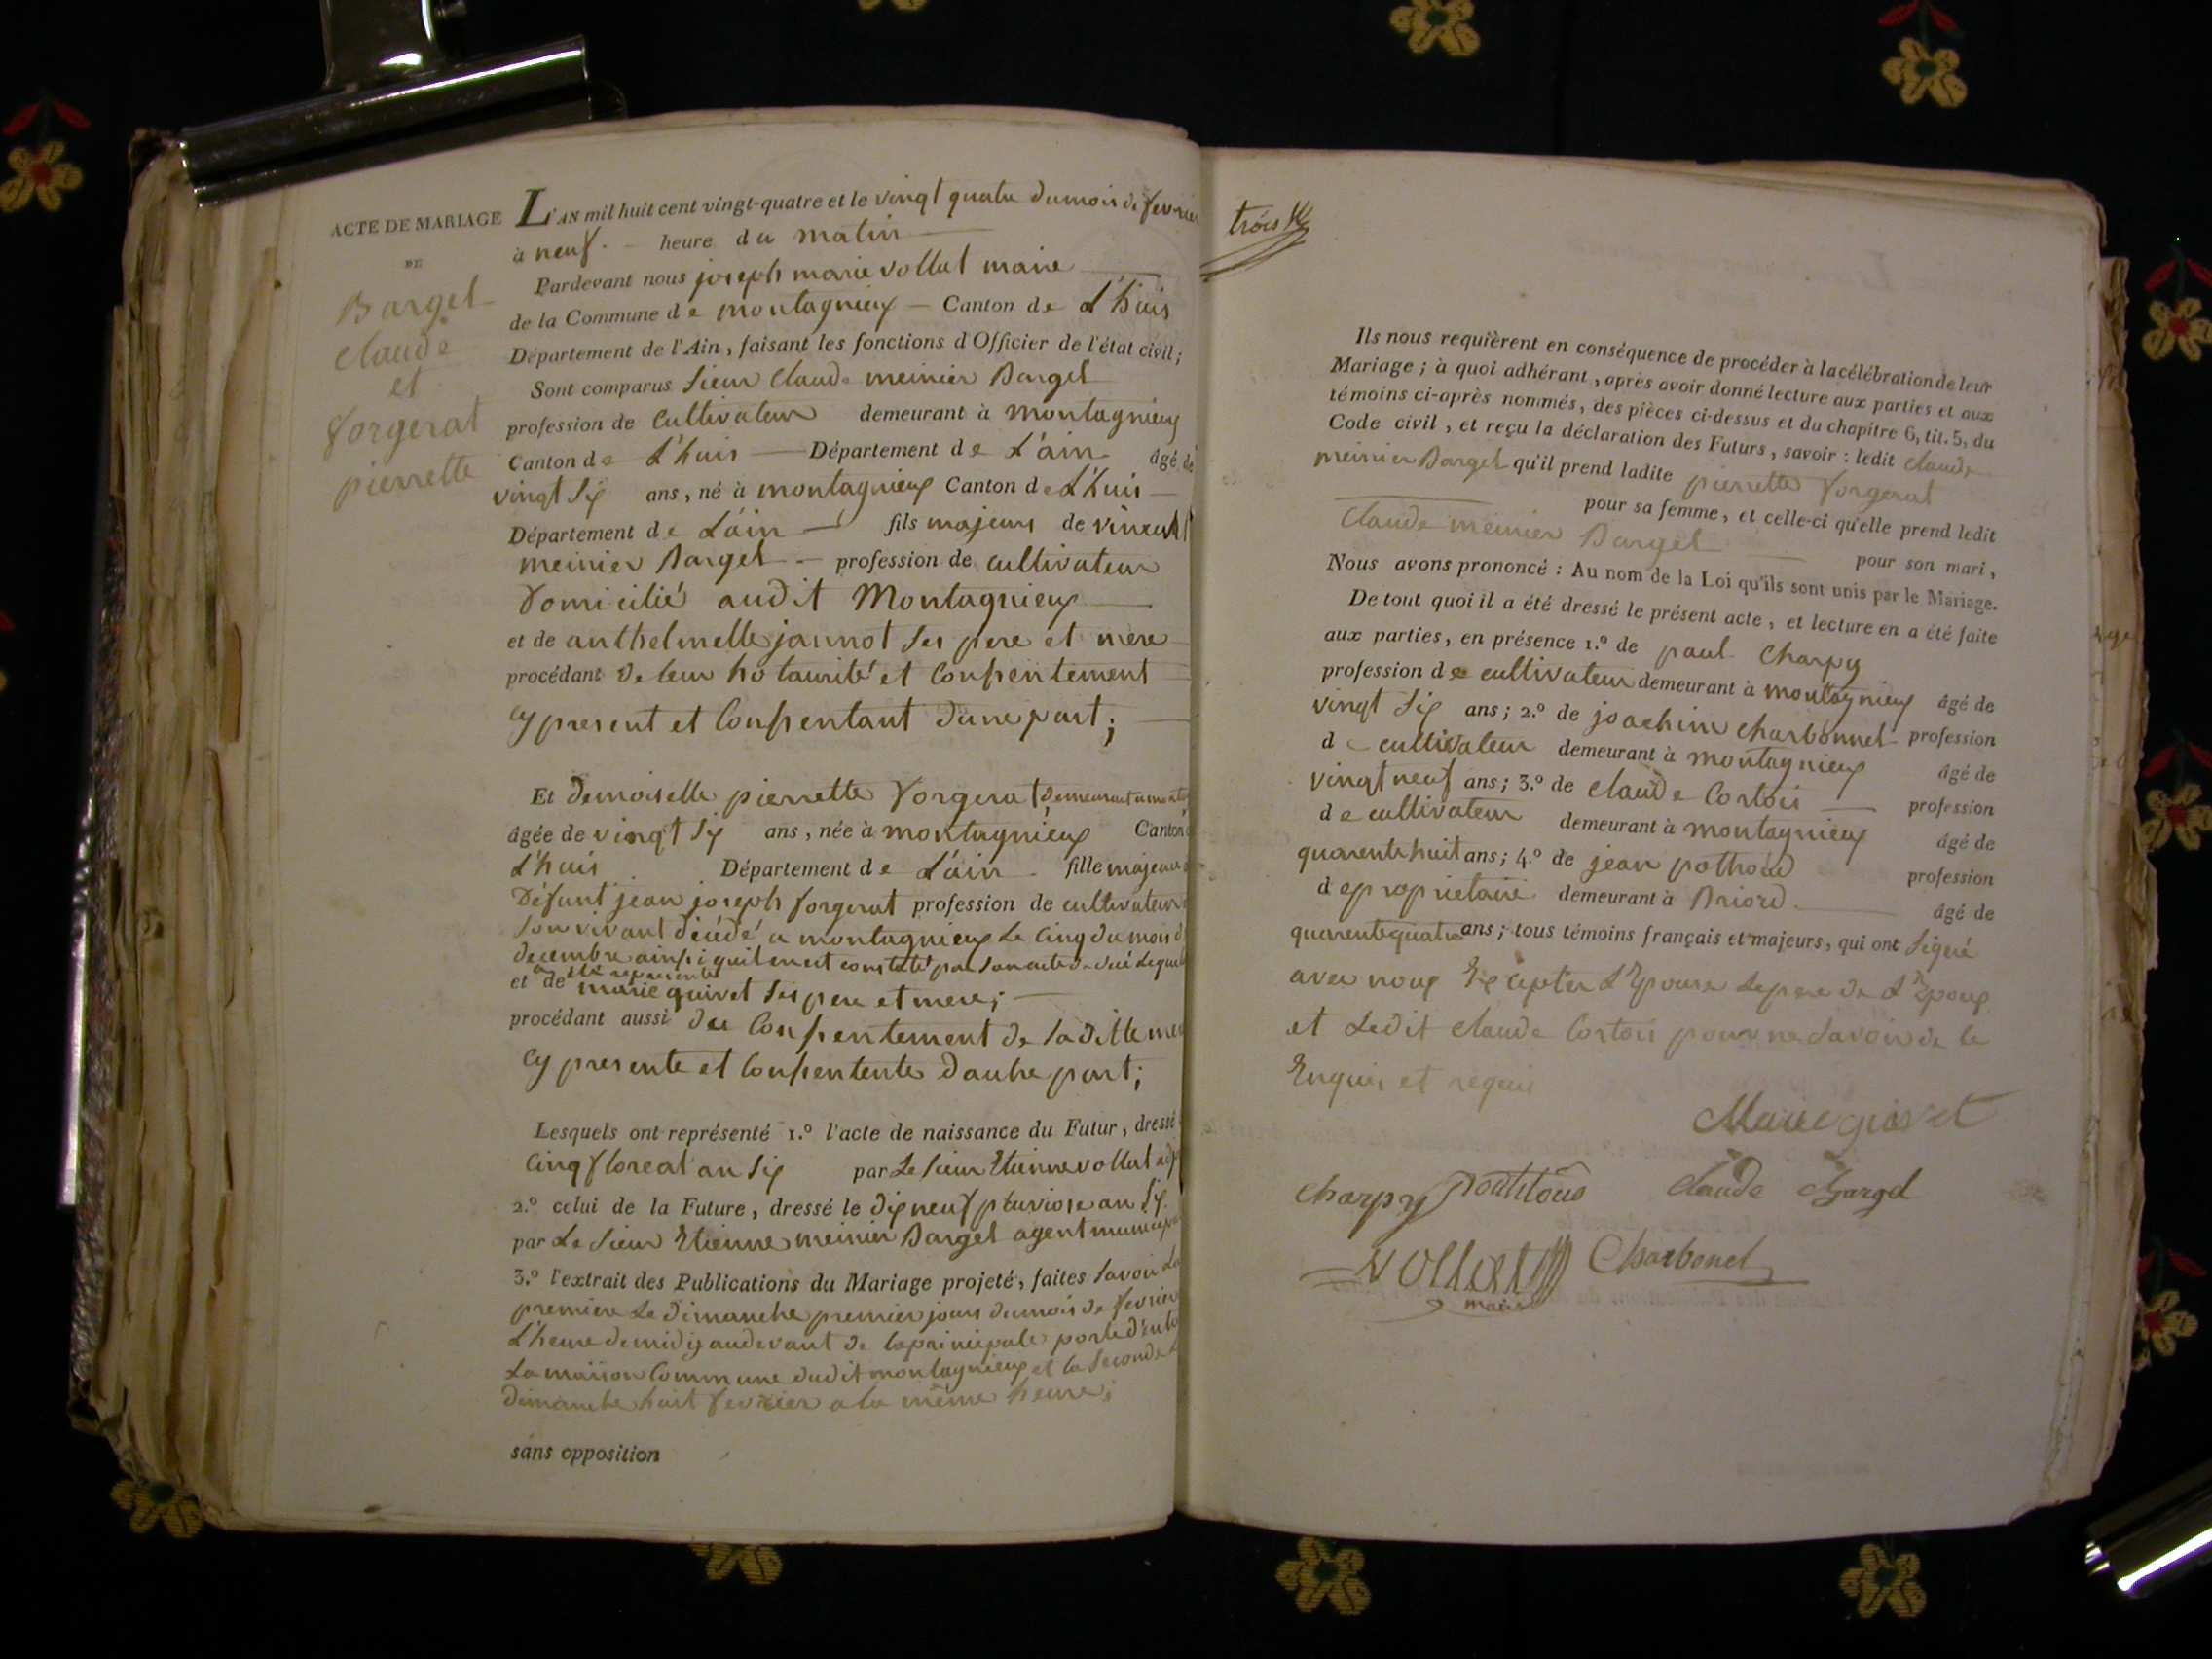 ACTE DE MARIAGE
DE
Bargel
claude
et
forgerat
pierrette
L'AN mil huit cent vingt-quatre et le vingt quatre du mois de fevrier
à neuf heure du matin
Pardevant nous joseph marie vollut maire
de la Commune de montagnieux Canton de L'huis
Département de l'Ain, faisant les fonctions d'Officier de l'état civil;
Sont comparus sieur Claude meinier Bargel
profession de Cultivateur demeurant à montagnieux
Canton de L'huis Département de L'ain âgé de
vingt six ans, né à montagnieux Canton de L'huis
Département de L'ain fils majeurs de vincent
meinier Bargel profession de cultivateur
Domicilié audit Montagnieux
et de anthelmette jannot ses pere et mere
procédant de leur hotaurité et Consentement
Cy present et Consentant d'une part;
Et demoiselle pierrette forgerat demeurant a
âgée de vingt six ans, née à montagnieux Canton
L'huis Département de L'ain fille majeure
Défunt jean joseph forgerat profession de cultivateur
son vivant décédé a montagnieux le cinq du mois
decembre ainsi quil en est constaté par son acte
a été représenté
et de marie quivet ses pere et mere;
procédant aussi du Consentement de la ditte mere
Cy presente et Consentente d'autre part;
Lesquels ont représenté 1.º l'acte de naissance du Futur, dressé
Cinq floreal an six par Le sieur Etienne vollut
2.º celui de la Future, dressé le dix neuf pluviose an six
par Le sieur Etienne meinier Bargel agent municipal
3.º l'extrait des Publications du Mariage projeté, faites savoir La
premiere Le dimanche premier jours du mois de fevrier
L'heure de midi audevant de la principale porte
La maison Commune dudit montagnieux et la seconde
dimanche huit fevrier a la même heure;
sans opposition
trois
Ils nous requièrent en conséquence de procéder à la célébration de leur
Mariage; à quoi adhérant, après avoir donné lecture aux parties et aux
témoins ci-après nommés, des pièces ci-dessus et du chapitre 6, tit. 5, du
Code civil, et reçu la déclaration des Futurs, savoir: ledit claude
meinier Bargel qu'il prend ladite pierrette forgerat
pour sa femme, et celle-ci qu'elle prend ledit
Claude meinier Bargel pour son mari,
Nous avons prononcé: Au nom de la Loi qu'ils sont unis par le Mariage.
De tout quoi il a été dressé le présent acte, et lecture en a été faite
aux parties, en présence 1.º de paul Charpy
profession de cultivateur demeurant à montagnieux âgé de
vingt six ans; 2.º de joachim charbonnel profession
de cultivateur demeurant à montagnieux âgé de
vingt neuf ans; 3.º de claude Cortois profession
de cultivateur demeurant à montagnieux âgé de
quarente huit ans; 4.º de jean pothoud profession
de proprietaire demeurant à Briord âgé de
quarente quatre ans; tous témoins français et majeurs, qui ont signé
avec nous Excepter L'Epouse Le pere de L'Epoux
et Ledit claude Cortois pour ne savoir de ce
Enquis et requis
Marie
charpy Claude Bargel
Charbonel
maire